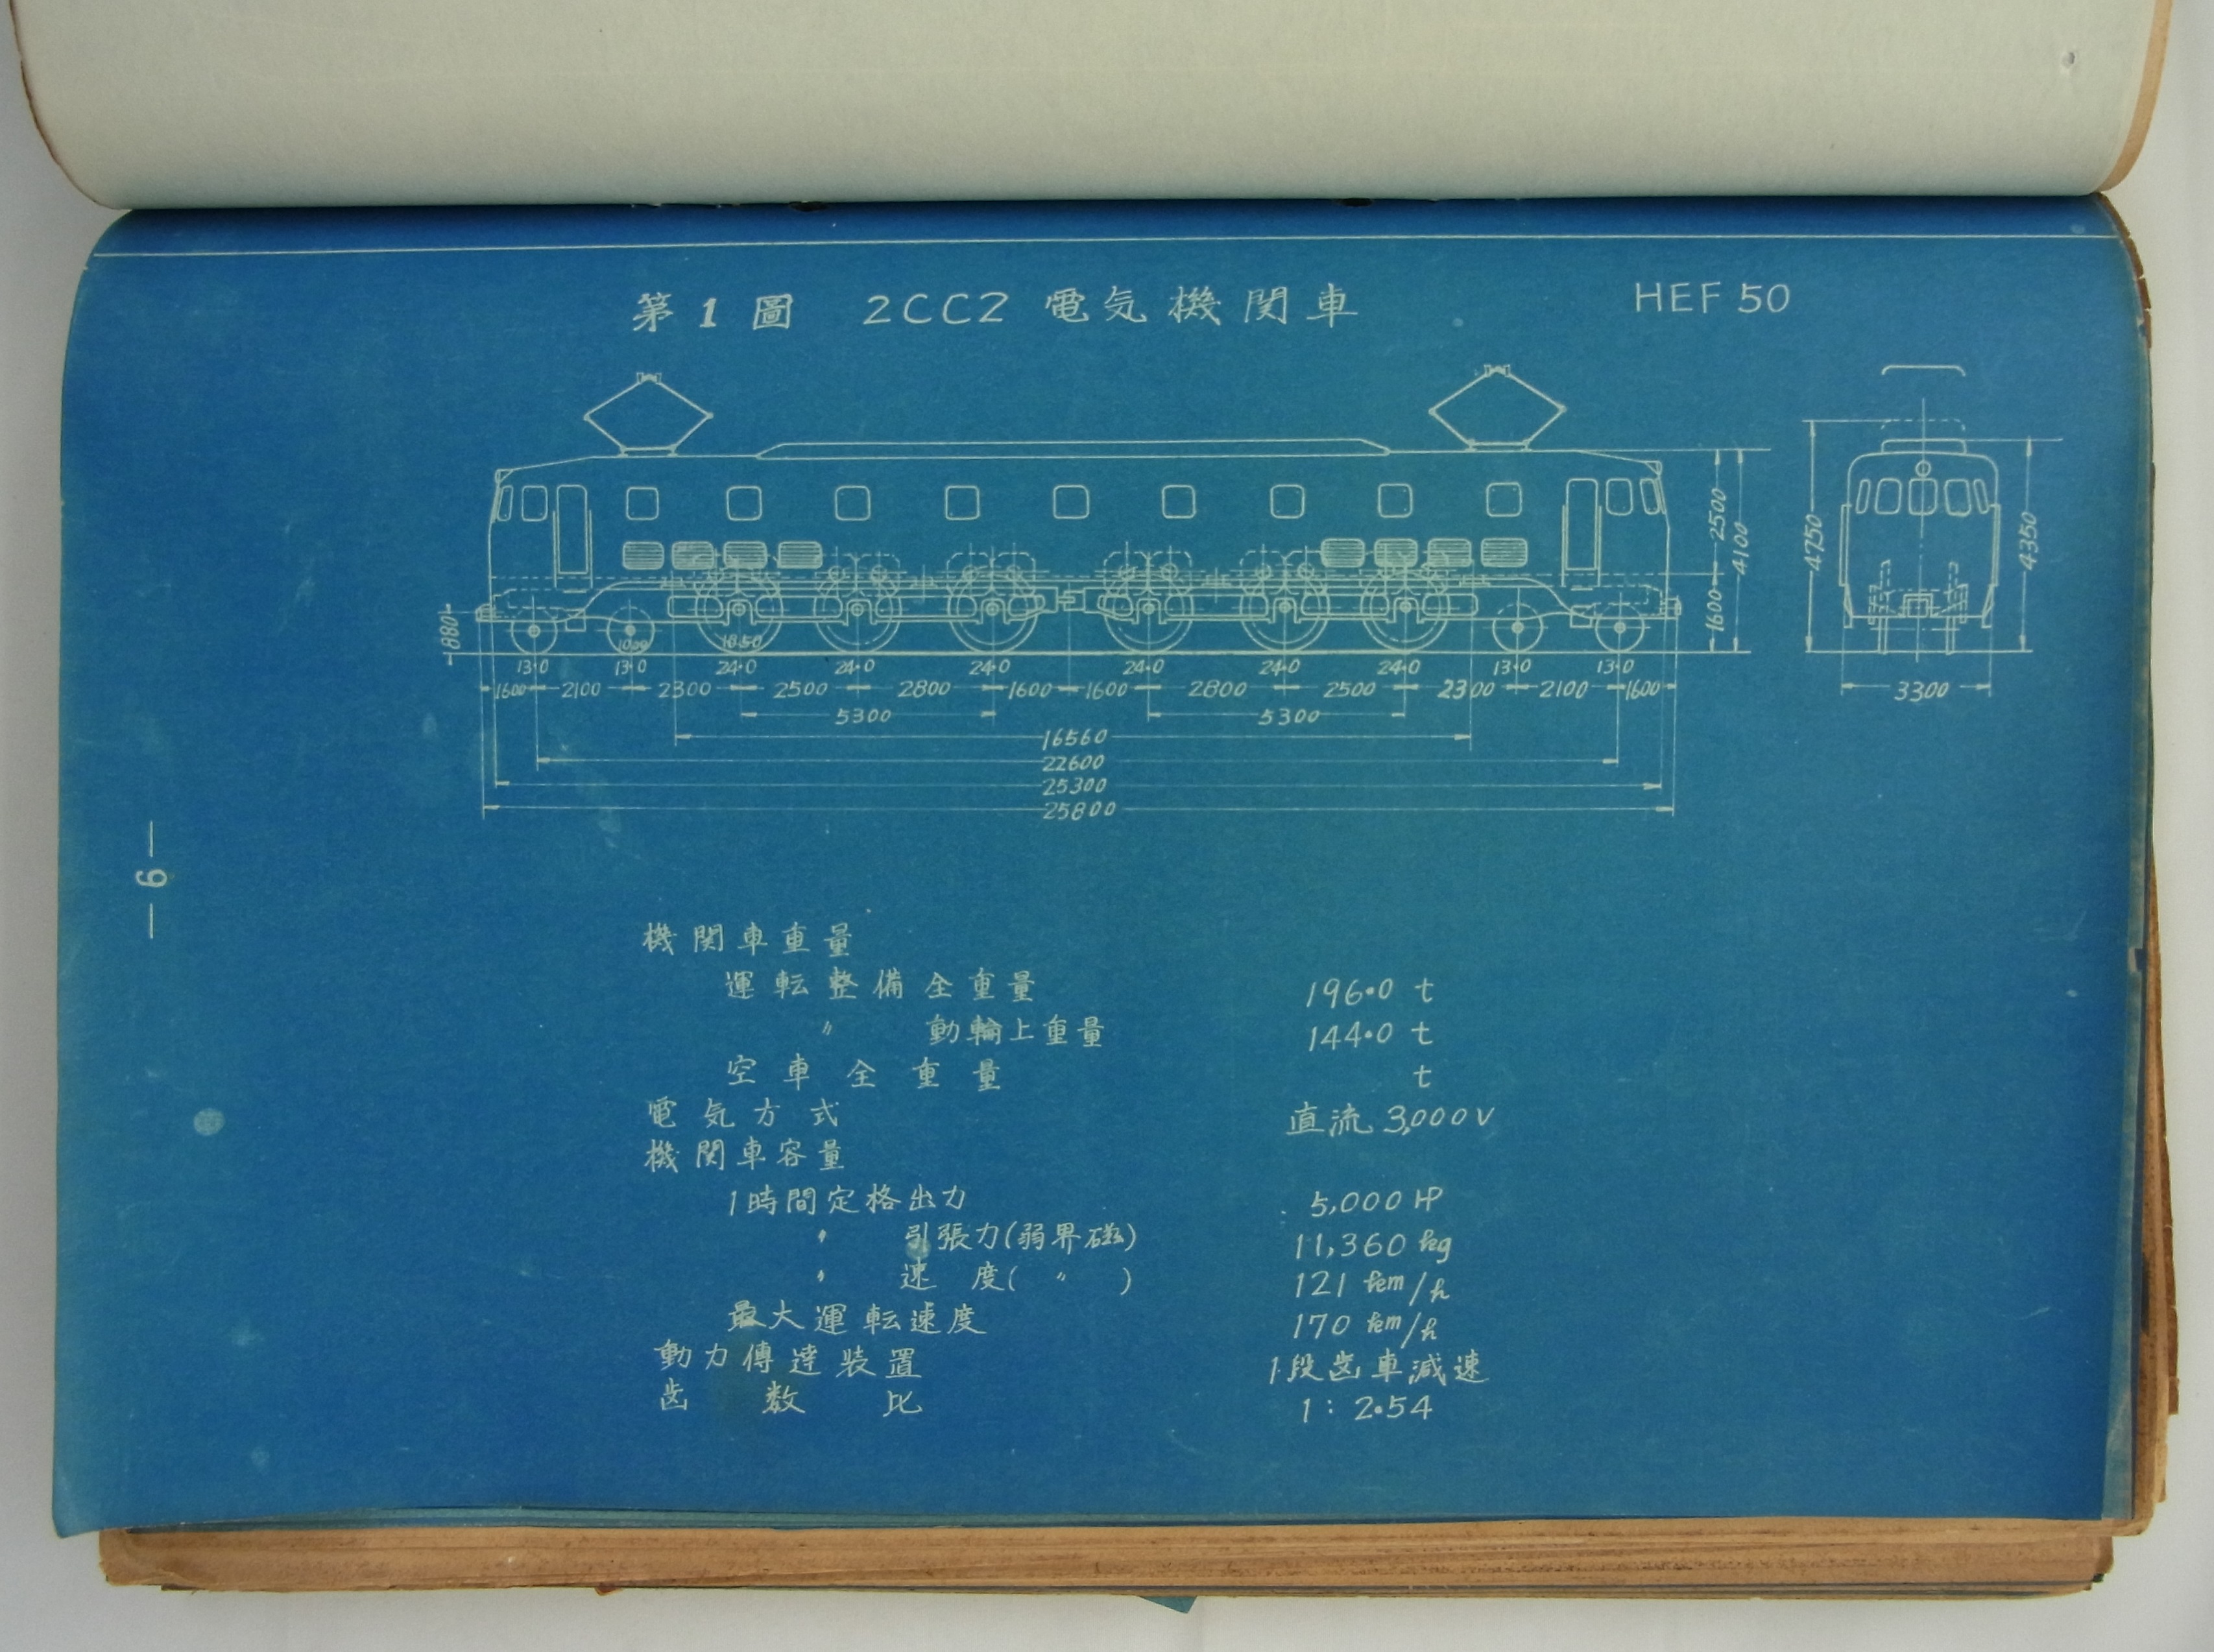 第1圖 2CC2電気機関車 HEF50
2500
4100
1600
4750
4350
880
1000 1850
13.0 13.0 24.0 24.0 24.0 24.0 24.0 24.0 13.0 13.0
1600 2100 2300 2500 2800 1600 1600 2800 2500 2300 2100 1600 3300
5300 5300
16560
22600
25300
25800
— 6 —
機関車重量
運転整備全重量 196.0 t
〃 動輪上重量 144.0 t
空車全重量 t
電気方式 直流 3,000V
機関車容量
1時間定格出力 5,000 HP
〃 引張力(弱界磁) 11,360 kg
〃 速度( 〃 ) 121 km/h
最大運転速度 170 km/h
動力傳達装置 1段歯車減速
歯数比 1:2.54